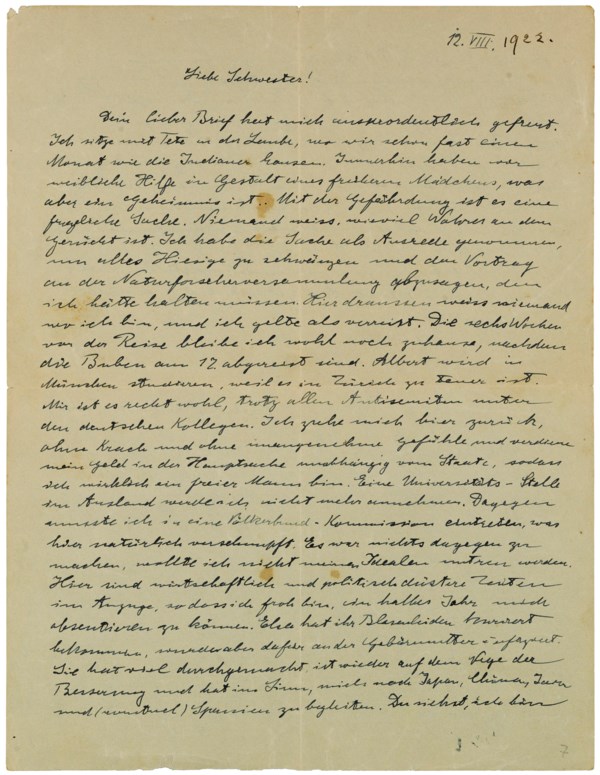 12. VIII. 1922.
Liebe Schwester!
Dein lieber Brief hat mich ausserordentlich gefreut.
Ich sitze mit Tete in der Laube, wo wir schon fast einen
Monat wie die Indianer hausen. Immerhin haben wir
weibliche Hilfe in Gestalt eines frühern Mädchens, was
aber ein Geheimnis ist. Mit der Gefährdung ist es eine
fragliche Sache. Niemand weiss, wieviel Wahres an dem
Gerücht ist. Ich habe die Sache als Ausrede genommen,
um alles Hiesige zu schwänzen und den Vortrag
an der Naturforscherversammlung abzusagen, den
ich hätte halten müssen. Hier draussen weiss niemand
wo ich bin, und ich gelte als verreist. Die sechs Wochen
vor der Reise bleibe ich wohl noch zuhause, nachdem
die Buben am 17 abgereist sind. Albert wird in
München studieren, weil es in Zürich zu teuer ist.
Mir ist es recht wohl, trotz allen Antisemiten unter
den deutschen Kollegen. Ich ziehe mich hier zurück,
ohne Krach und ohne unangenehme Gefühle und verdiene
mein Geld in der Hauptsache unabhängig vom Staate, sodass
ich wirklich ein freier Mann bin. Eine Universitäts-Stelle
im Ausland werde ich nicht mehr annehmen. Dagegen
musste ich in eine Völkerbund-Kommission eintreten, was
hier natürlich verschnupft. Es war nichts dagegen zu
machen, wollte ich nicht meinen Idealen untreu werden.
Hier sind wirtschaftlich und politisch düstere Zeiten
im Anzuge, so dass ich froh bin, ein halbes Jahr mich
absentieren zu können. Elsa hat ihr Blasenleiden
bekommen, wurde aber dafür an der Gebärmutter
Sie hat viel durchgemacht ist wieder auf dem Wege der
Besserung und hat im Sinn, mich nach Japan, China, Java
und (eventuel) Spanien zu begleiten. Du siehst, ich bin
7